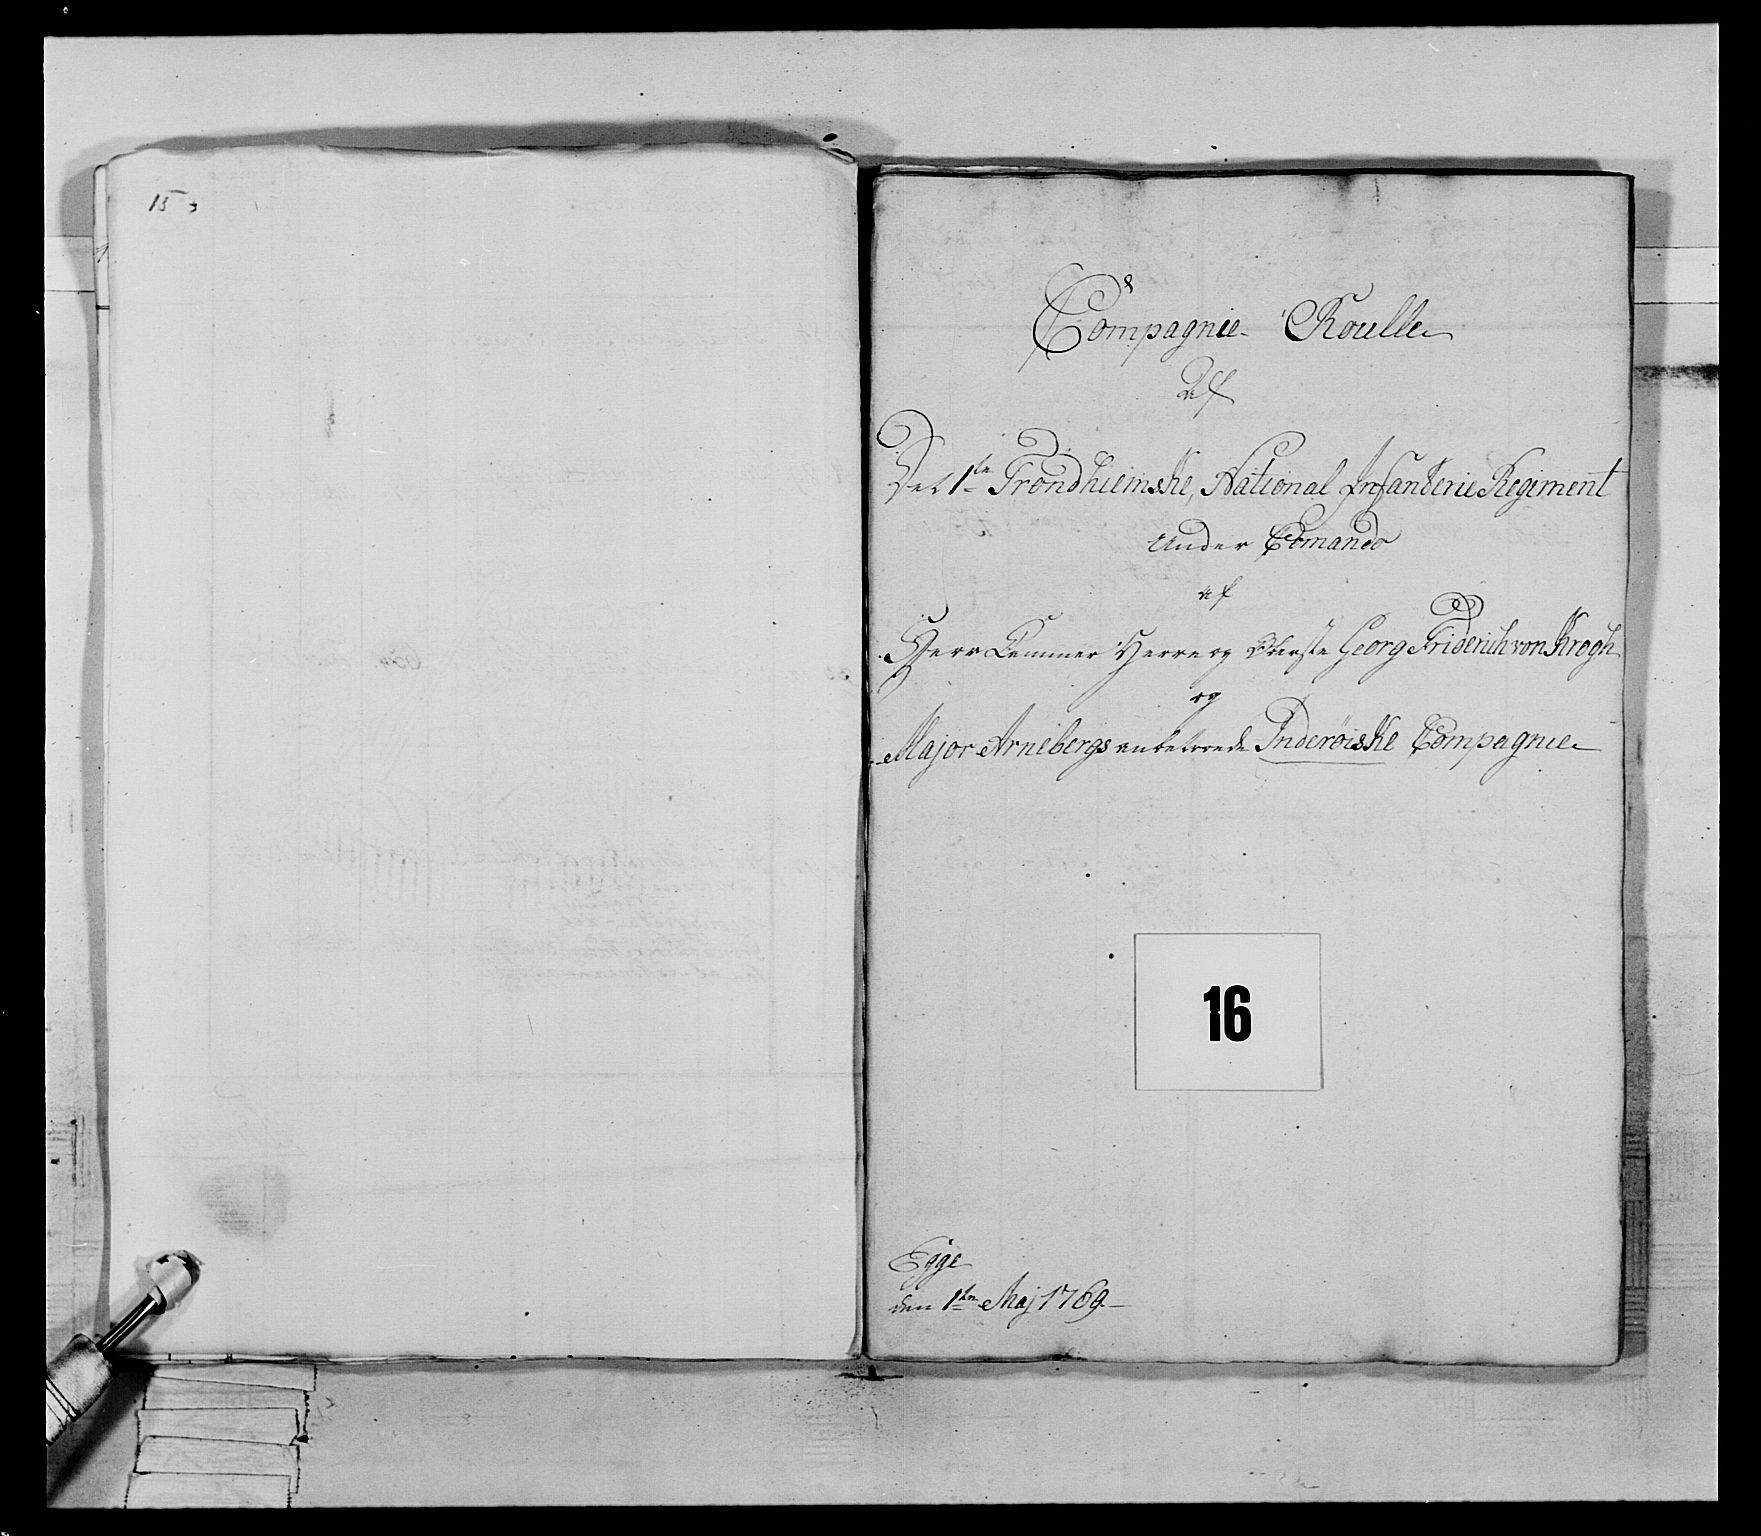 15
Compagnie Roulle
Af
Det 1te Trondhiemske, National Infanterie Regiment
Under Comando
af
Herr Cammer Herre og Oberste Georg Friderich von Krogh
og
Major Arnebergs anbetroede Inderøiske Compagnie
16
Egge
den 1ten Maj 1769.